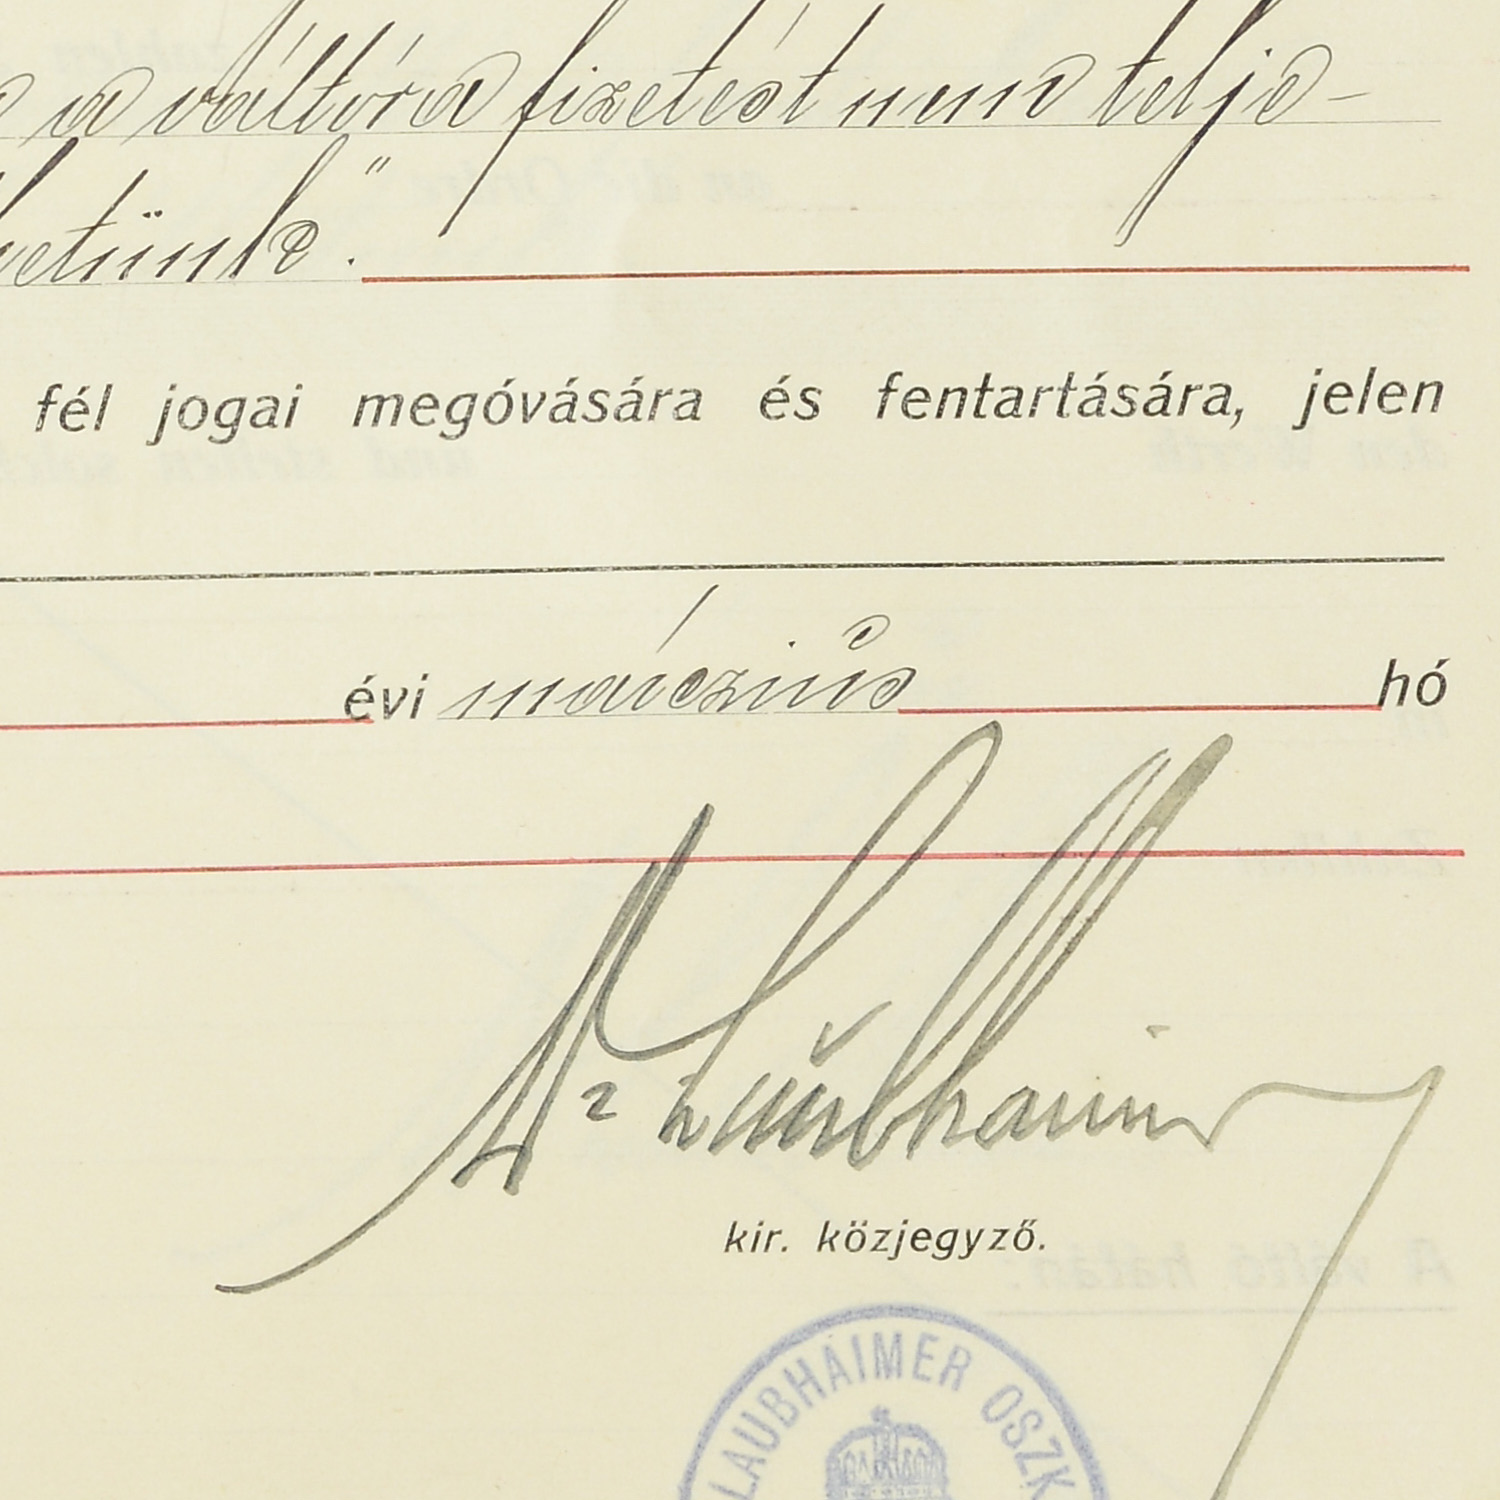 a váltóra fizetést nem telje-
hetünk."
fél jogai megóvására és fentartására, jelen
évi márczius hó
Dr Laubhaimer
kir. közjegyző.
LAUBHAIMER OSZK